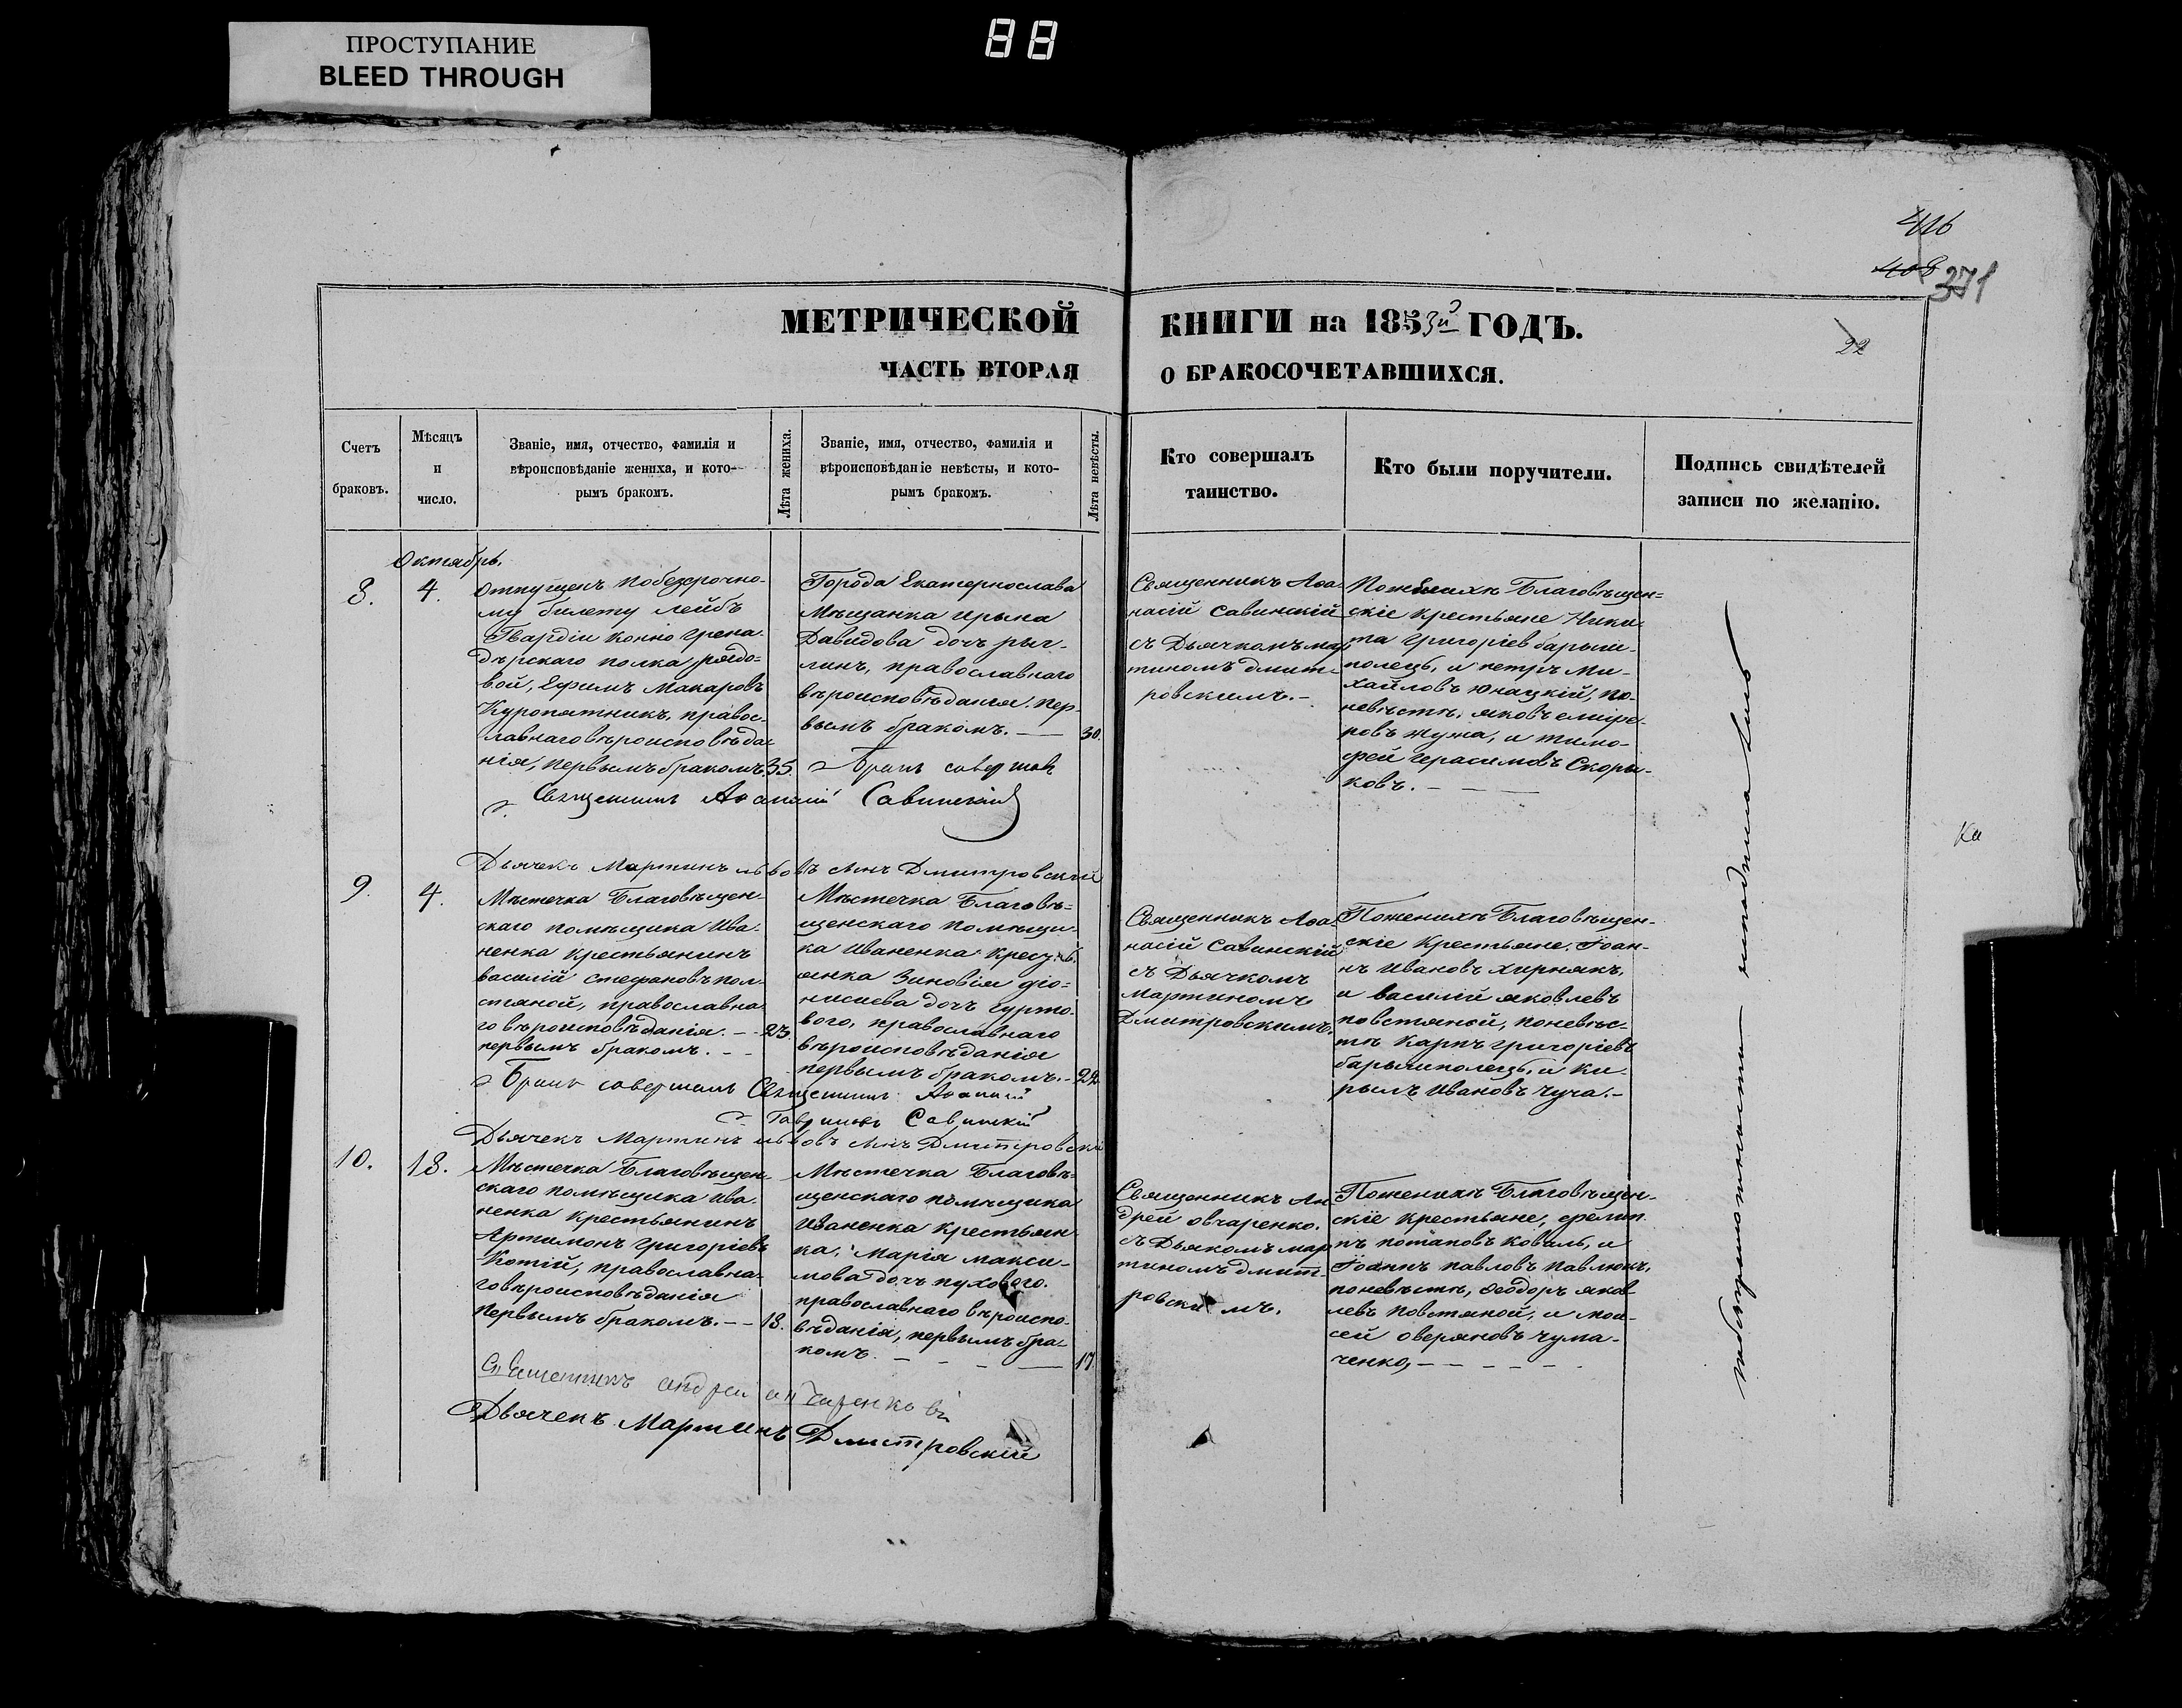 ПРОСТУПАНИЕ
BLEED THROUGH
88
416
408 371
22
МЕТРИЧЕСКОЙ КНИГИ на 1853й ГОДЪ.
ЧАСТЬ ВТОРАЯ О БРАКОСОЧЕТАВШИХСЯ.
Счетъ
браковъ.
Мѣсяцъ
и
число.
Званіе, имя, отчество, фамилія и
вѣроисповѣданіе жениха, и кото-
рымъ бракомъ.
Лѣта жениха.
Званіе, имя, отчество, фамилія и
вѣроисповѣданіе невѣсты, и кото-
рымъ бракомъ.
Лѣта невѣсты.
Кто совершалъ
таинство.
Кто были поручители.
Подпись свидѣтелей
записи по желанію.
Октябрь.
8.
4.
Отпущенъ по безсрочно-
му билету Лейбъ
Гвардіи конно грена-
дѣрскаго полка рядо-
вой, Ефимъ Макаровъ
Куропятникъ, правос-
лавнаго вѣроисповѣда-
нія, первымъ бракомъ 35
Города Екатернослава
Мѣщанка Ирына
Давидова дочь
православнаго
вѣроисповѣданія. Пер-
вымъ бракомъ. — 30.
Священникъ Афа-
насій Савинскій
съ Дьячкомъ Мар
тиномъ Дмит-
ровскимъ.-
Пожениxѣ Благовѣщен-
скіе крестьяне Ники-
та Григоріев барыш-
полецъ, и петръ Ми-
хайловъ Юнацкій, по-
невѣстѣ, яковъ
жужа, и тимо-
фей Герасимовъ Скоры-
ковъ. — —
Бракъ соверша
Священникъ Афанасій Савинскій
Дьячекъ Мартинъ Львовъ Дмитровскій
9.
4.
Мѣстечка Благовѣщен-
скаго помѣщика Ива-
ненка крестьянинъ
василій стефановъ пол-
стяной, православна-
го вѣроисповѣданія. — 23.
первымъ бракомъ. - -
Мѣстечка Благовѣ-
щенскаго помѣщи-
ка Иваненка
янка Зиновія діо-
нисиева дочь гурто-
вого, православнаго
вѣроисповѣданія
первымъ бракомъ. - 22
Священникъ Афа-
насій Савинскій
съ Дьячкомъ
Мартиномъ
Дмитровскимъ.
Поженихѣ Благовѣщен-
скіе Крестьяне, Іоан-
нъ Ивановъ хирнякъ,
и василій яковлевъ
повстяной, поневѣс-
тѣ Карпъ григоріевъ
барышполецъ, и Ки-
рылъ Ивановъ Чуча.-
Бракъ совершалъ Священникъ Афанасій
Гавриловъ Савинскій
Дьячекъ Мартинъ Львовъ Дмитровскій
10.
18.
Мѣстечка Благовѣщен-
скаго помѣщика Ива-
ненка крестьянинъ
Артимонъ григоріевъ
Котій, православна-
го вѣроисповѣданія
Первымъ бракомъ. - - 18.
Мѣстечка Благовѣ-
щенскаго помѣщика
Иваненка крестьян-
ка, Марія макси-
мова дочь пухового.
православнаго вѣроиспо-
вѣданія, первымъ бра-
комъ. — — — 17.
Священникъ Ан
дрей овчаренко.
съ Дьякомъ мар
тиномъ дмит-
ровскимъ.
Поженихѣ Благовѣщен-
скіе крестьяне, филип
пъ потаповъ коваль, и
Іоаннъ павловъ павлюкъ,
поневѣстѣ, Феодоръ яков
левъ повстяной, и мои-
сей оверяновъ чума-
ченко, - - - - -
Священникъ Андрей
Дьячекъ Мартинъ Дмитровскій
Ка